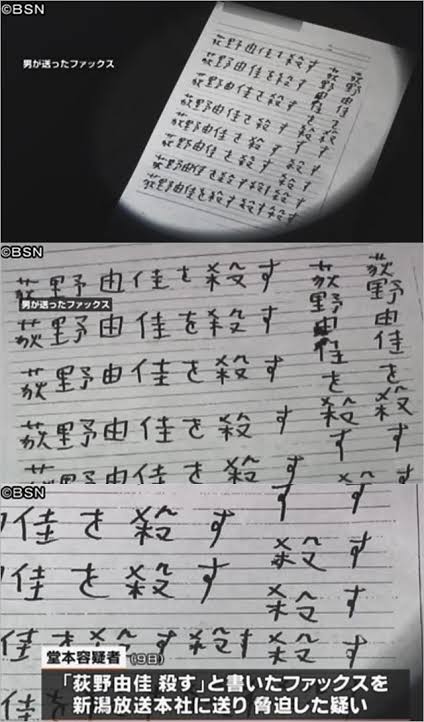 ©BSN
男が送ったファックス
荻野由佳を殺す
荻野由佳を殺す
荻野由佳を殺す
荻野由佳を殺す
荻野由佳を殺す
荻野由佳を殺す
荻野由佳を殺す殺す
荻野由佳を殺す殺す殺す
荻野由佳を殺す
荻野由佳を殺す
©BSN
男が送ったファックス
荻野由佳を殺す
荻野由佳を殺す
荻野由佳を殺す
荻野由佳を殺す
荻野由佳を殺す
荻野由佳を殺す
荻野由佳を殺す
©BSN
佳を殺す
佳を殺す
佳を殺す殺す
す
殺す
殺す
殺す
堂本容疑者(9日)
「荻野由佳 殺す」と書いたファックスを
新潟放送本社に送り 脅迫した疑い